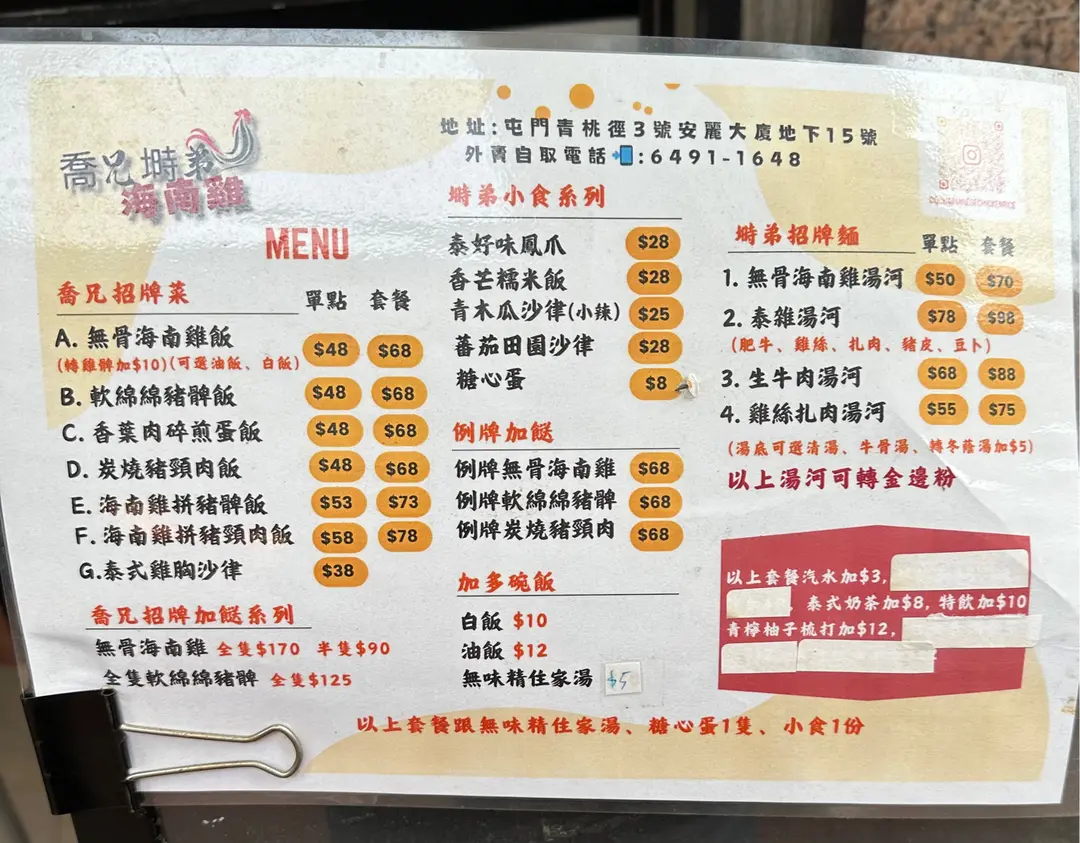 地址:屯門青桃徑3號安麗大廈地下15號
外賣自取電話📲:6491-1648
喬兄塒弟
海南雞
MENU
喬兄招牌菜 單點 套餐
A. 無骨海南雞飯 $48 $68
(轉雞髀加$10)(可選油飯、白飯)
B. 軟綿綿豬髀飯 $48 $68
C. 香葉肉碎煎蛋飯 $48 $68
D. 炭燒豬頸肉飯 $48 $68
E. 海南雞拼豬髀飯 $53 $73
F. 海南雞拼豬頸肉飯 $58 $78
G.泰式雞胸沙律 $38
喬兄招牌加餸系列
無骨海南雞 全隻$170 半隻$90
全隻軟綿綿豬髀 全隻$125
塒弟小食系列
泰好味鳳爪 $28
香芒糯米飯 $28
青木瓜沙律(小辣) $25
蕃茄田園沙律 $28
糖心蛋 $8
例牌加餸
例牌無骨海南雞 $68
例牌軟綿綿豬髀 $68
例牌炭燒豬頸肉 $68
加多碗飯
白飯 $10
油飯 $12
無味精住家湯 $5
塒弟招牌麵 單點 套餐
1. 無骨海南雞湯河 $50 $70
2. 泰雜湯河 $78 $98
(肥牛、雞絲、扎肉、豬皮、豆卜)
3. 生牛肉湯河 $68 $88
4. 雞絲扎肉湯河 $55 $75
(湯底可選清湯、牛骨湯、轉冬蔭湯加$5)
以上湯河可轉金邊粉
以上套餐汽水加$3,
, 泰式奶茶加$8, 特飲加$10
青檸柚子梳打加$12,
以上套餐跟無味精住家湯、糖心蛋1隻、小食1份